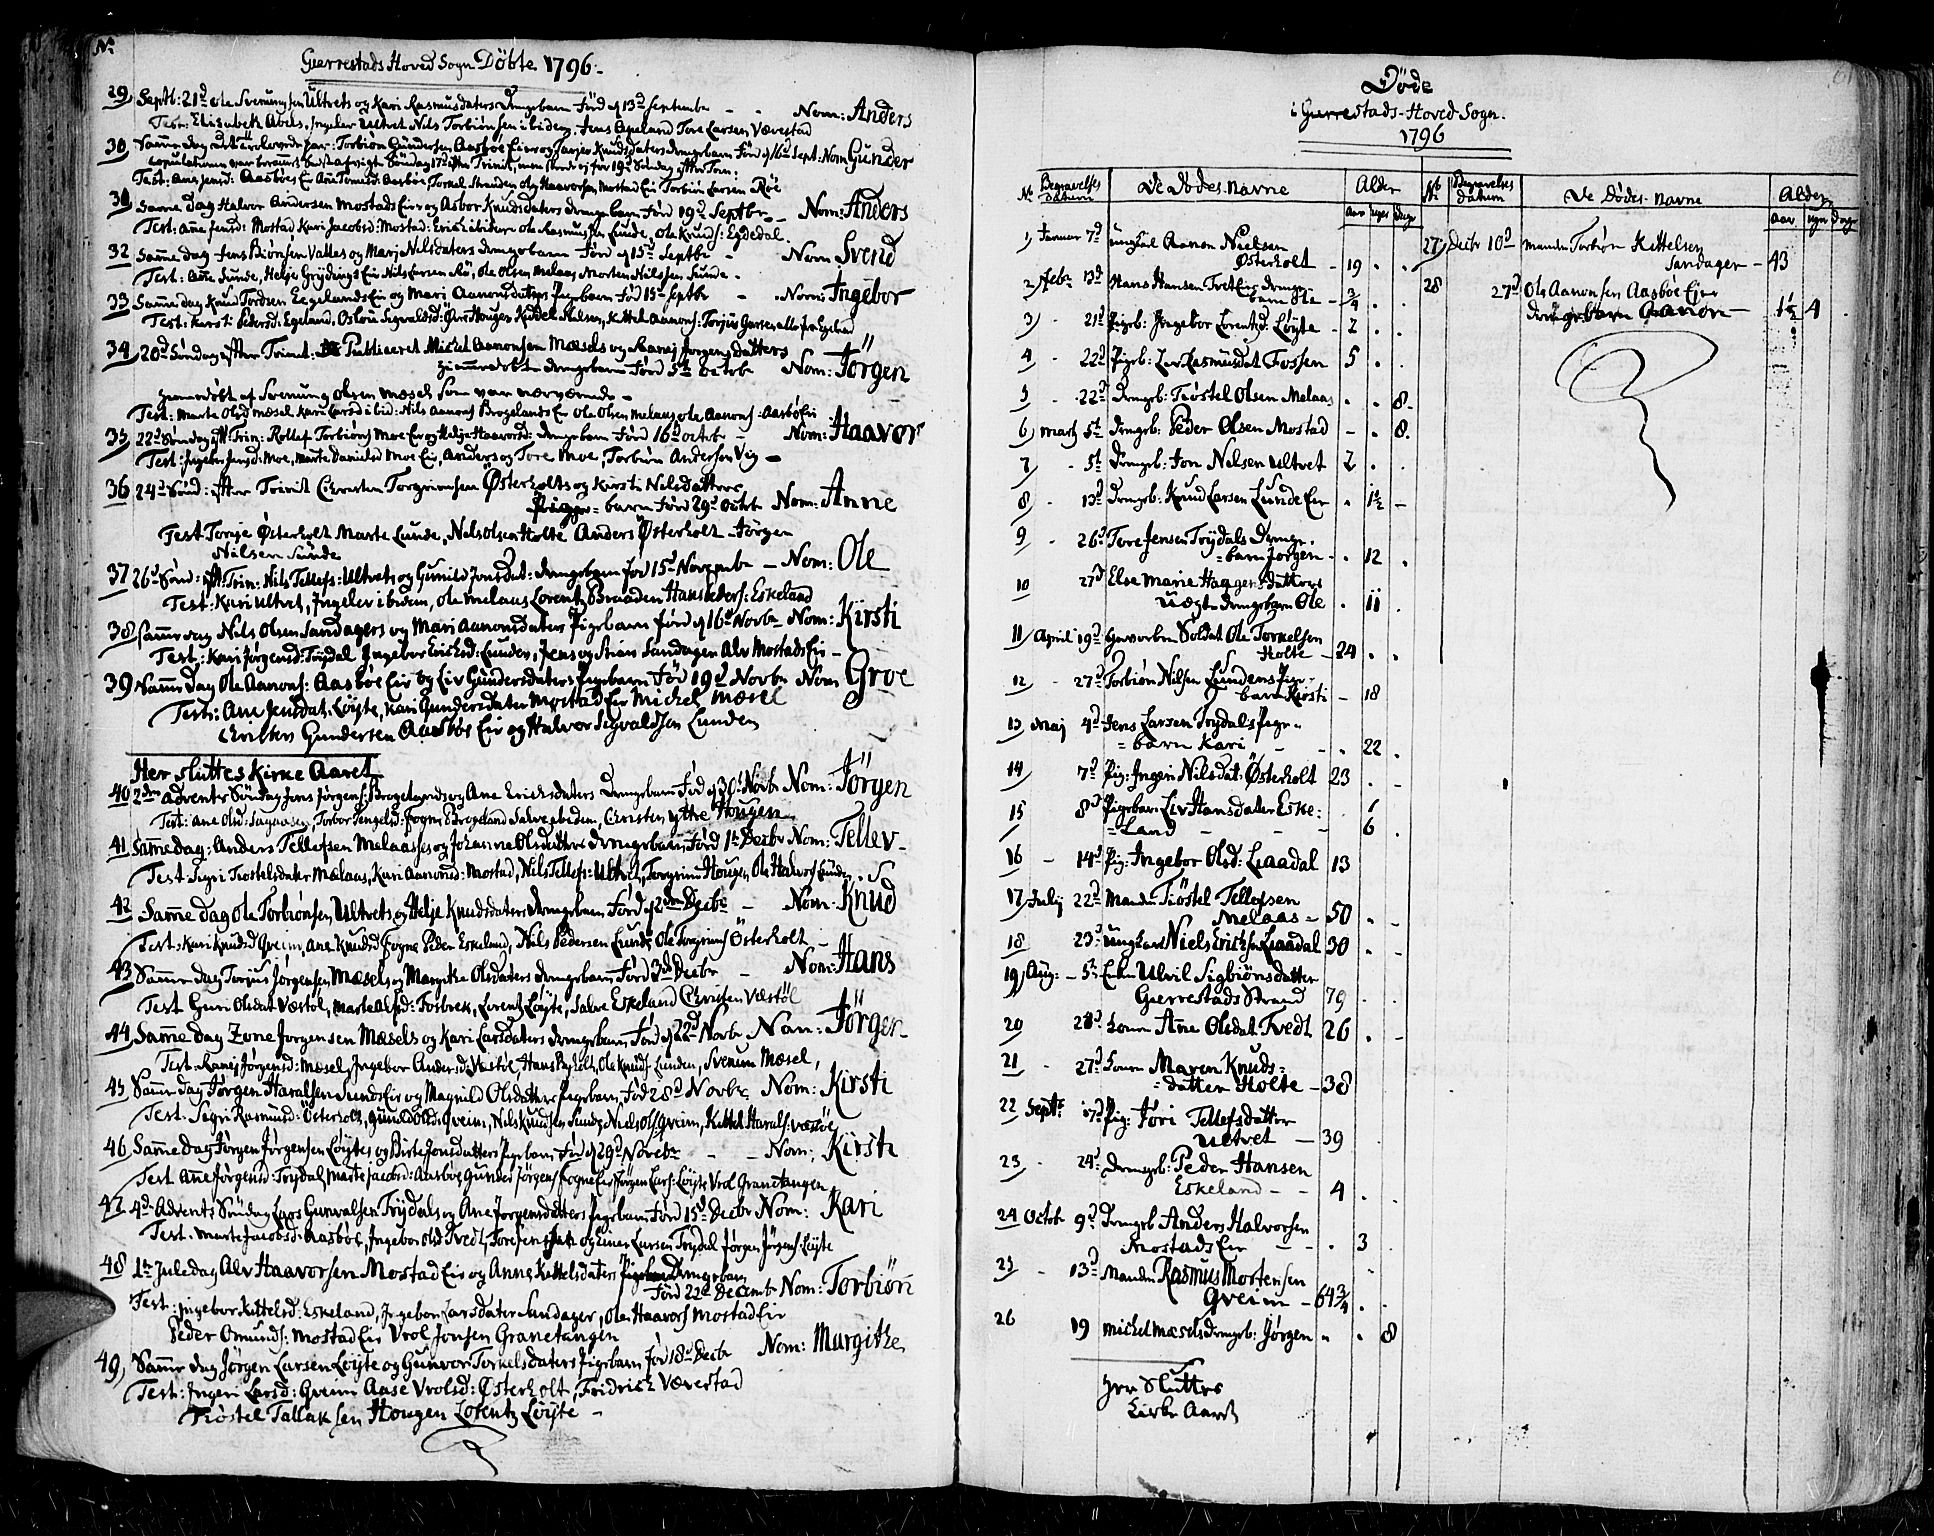 No
Gierrestads Hoved Sogn Döbte 1796.
29 Septb: 21d Ole Svenungsen Ultvets og Kari Rasmusdaters drengebarn Född 13d Septembr - - Nom: Anders
Test: Elisabeth Abels, Ingeler Ultvet Nils Torbiönsen ibidem, Jens Apeland Tore Larsen Værestad
30 Samme dag Torbiön Gundersen Aasböe Eie og Knudsdaters drengebarn Föd 16d Sept: Nom Gunder
Copulationen Söndag 17d efter Trinit, men skede ej för 19d Söndag efter Trin:
Test: Aasböe Eie Ane Aasböe, Torkel Stranden Ole Haavorsen Mostad Eie Torbiön Larsen Röe
31 Samme dag Halvor Andersen Mostads Eie og Asbor Knudsdaters drengebarn Föd 19d Septbr - Nom: Anders
Test: Ane Jensd: Mostad Kari Jacobsd: Mostad: Eric Ole Rasmussen Lunde, Ole Knuds: Egdedal
32 Samme dag Jens Biönsen Valles og Mari Nilsdaters drengebarn Föd 15d Septbr - Nom Svend
Test: Ane Sunde, Helje Grydings Eie Nils Eversen Rö, Ole Olsen Melaas Morten Nilssen Sunde -
33 Samme dag Knud Tordsen Egelands Eie og Mari Aanonsdaters Pigebarn Föd 15d Septbr - Nom: Ingebor
Test: Karsti Pedersd: Egeland, Oslou Sigvaldsd: Hougen Kittel Nilsen, Kittel Aanons: Torjus Gunders alle fra Egeland
34 20d Söndag efter Trinit: Publiceret Michel Aanonsen Mæsels og Ranej Jörgensdatters
hjemmedöbt drengebarn Föd 5te Octobr Nom: Jörgen
hjemmedöbt af Svenung Olsen Mæsel som var nærværende -
Test: Marte Olsd Mæsel Kari Larsd ibid: Nils Aanons Brogelands Eie Ole Olsen Melaas Ole Aanons: Aasbö Eie
35 22d Söndag eft Trin: Rollef Torbiöns Moe Eie og Helje Haavorsd: drengebarn Föd 16d Octobr - Nom: Haavor
Test: Ingebor Jensd: Moe, Marte Danielsd Moe Eie, Anders og Tore Moe, Torbiön Andersen Vig -
36 24d Sönd: efter Trinit Christen Torgrimsen Österholts og Kirsti Nilsdatters
Pige= barn Föd 29d Octbr Nom: Anne
Test Torje Österholt Marte Lunde, Nils Olsen Holte Anders Österholt - Jörgen
Nilsen Sunde
37 26d Sönd: eft: Trin: Nils Tellefs: Ultvets og Gunild Jonsdat: drengebarn föd 15d Novembr - Nom: Ole
Test: Kari Ultvet, Ingeler ibidem, Ole Melaas Lorentz Braaden Hans Peders: Eskeland
38 Samme dag Nils Olsen Sandagers og Mari Aanonsdaters Pigebarn föd d 16d Novbr Nom: Kirsti
Test: Kari Jörgensd: Trydal Ingebor Ericksd: Lunden, Jens og Stian Sandager Alv Mostads Eie -
39 Samme dag Ole Aanons: Aasböe Eie og Liv Gundersdaters Pigebarn Föd 19d Novbr Nom Groe
Test: Ane Jensdat. Löyte, Kari Gundersdater Mostad Eie Michel Mæsel
Christen Gundersen Aasböe Eie og Halvor Sigvaldsen Lunden
Her sluttes Kirke Aaret
40 2den Advents Söndag Jens Jörgens: Brogelands og Ane Ericksdaters Drengebarn Föd d 30d Novb Nom: Jörgen
Test: Ane Olsd: Torbor Tengelsd: Fogne Brogeland Salve ibidem, Christen ytre Hougen
41 Samme dag: Anders Tellefsen Melaases og Johanne Olsdatters drengebarn, Föd 1te Decbr Nom: Tellev -
Test: Sigri Tiostelsdater Mælaas, Kari Aanonsd: Mostad, Nils Tellefs: Ultvet, Torgrim Hougen, Ole Halvors Lunden
42 Samme dag Ole Torbiönsen Ultvets og Helje Knudsdaters drengebarn, Föd d 2den Decbr - Nom: Knud
Test: Kari Knudsd Qveim, Ane Knudsd Fogne Peder Eskeland, Nils Pedersen Lunde Ole Torgrims Österholt -
43 Samme dag Torjus Jörgensen Mæsels og Margithe Olsdaters drengebarn Föd 3de Decbr - Nom: Hans
Test Guri Olsdat Væstöl, Marte Olsd: Fosbrek, Lorentz Löyte, Salve Eskeland Christen Væstöl
44 Samme dag Zone Jörgensen Mæsels og Kari Larsdaters drengebarn Föd d 22d Novbr Nom: Jörgen
Test. Ranej Jörgensd: Mæsel, Ingebor Andersd: Væstöl, Hans Ole Knuds: Lunden, Svenum Mæsel,
45 Samme dag Jörgen Haralsen Sunds Eie og Magnild Olsdatter Pigebarn, Föd 28d Novbr. Nom: Kirsti
Test. Sigri Rasmusd: Österholt, Gunild Olsd: Qveim, Nils Knudsen Sunde Niels Ols: Qveim, Kittel Harals: Væstöl
46 Samme dag Jörgen Jörgensen Löytes og Birte Jonsdatters Pigebarn, föd d 29d Novbr - - Nom: Kirsti
Test Ane Jörgensd: Trydal, Marte Jacobsd: Aasböe Gunder Jörgens Fogne Eie Jörgen Lars: Löyte Vrol Granetangen
47 4de Advents Söndag Lars Gunvalsen Trydals og Ane Jörgensdatters Pigebarn Föd 15d Decbr Nom: Kari
Test. Marte Jacobsd: Aasböe, Ingebor Olsd: Tvedt, Tore Jens og Einer Larsen Trydal Jörgen Jörgens: Löyte
48 1te Juledag Alv Haavorsen Mostad Eie og Anne Kittelsdaters Drengebarn
Föd 22d Decembr Nom: Torbiön
Test: Ingebor Kittelsd: Eskeland, Ingebor Larsdater Sandager, Ole Haavors Mostad Eie
Peder Omunds: Mostad Eie Vrol Jonsen Granetangen
49 Samme dag Jörgen Larsen Löyte og Gunvor Torkelsdaters Pigebarn föd 18de Decbr Nom: Margithe
Test: Ingeri Larsd: Qveim Aase Vrolsd: Österholt, Fridrich Værestad
Tiöstel Tallaksen Hougen Lorentz Löyte -
61
Döde
i Gierrestads-Hoved Sogn.
1796
No Begravelses datum De Dödes Navne Alder
Aar uger dage
1 Januar 7d ungkarl Aanon Nielsen
Österholt - 19
2 Febr 13d Hans Hansen Tvet Eie drenge=
barn Ole - 3/4
3 - 21d Pigeb: Ingebor Lorentzd: Löyte - 2
4 - 22d Pigeb: Liv Rasmusdat Fossen 5
5 - 22d Drengeb: Tiöstel Olsen Melaas 8
6 Marty 5te drengeb: Peder Olsen Mostad - 8
7 - 5te drengeb: Jon Nilsen Ultvet 2
8 - 13d drengeb: Knud Larsen Lunde Eie 1 1/2
9 - 26d Tore Jensen Trydals Drenge=
=barn Jörgen - 12
10 27d Else Marie Haagensdatters
uægte drengebarn Ole 11
11 April 19d Gevorben Soldat Ole Torkelsen
Holte - 24
12 - 27d Torbiön Nilsen Lundens Pige=
barn Kirsti - 18
13 Maj 4d Jens Larsen Trydals Pige=
=barn Kari - - 22
14 7d Pig: Ingeri Nilsdat: Österholt 23
15 8d Pigebarn Liv Hansdater Eske=
=Land - - - 6
16 - 14d Pig: Ingebor Olsd: Laadal 13
17 July 22d Manden Tiöstel Tellefsen
Melaas - 50
18 23d ungkarl Niels Erichsen Laadal 30
19 Aug: - 5te Enken Ulvil Sigbiönsdatter
Gierrestads Strand 79
20 21d Konen Anne Olsdat Tvedt 26
21 - 27d Konen Maren Knuds=
=datter Holte - 38
22 Septr 17d Pig: Jöri Tellefsdatter
Ultvet - 39
23 - 24d Drengeb: Peder Hansen
Eskeland - - 4
24 Octob 9d Drengeb Anders Halvorsen
Mostads Eie - - 3
25 - 13d Manden Rasmus Mortensen
Qveim - 64 3/4
26 19 Michel Mæsels drengeb: Jörgen 8
Her Sluttes
Kirke Aaret
No Begravelses datum De Dödes Navne Alder
Aar uger dage
27 Decbr 10d Manden Torbiön Kittelsen
Sandager - 43
28 27d Ole Aanonsen Aasböe Eies
drengebarn Aanon - 1 1/2 4